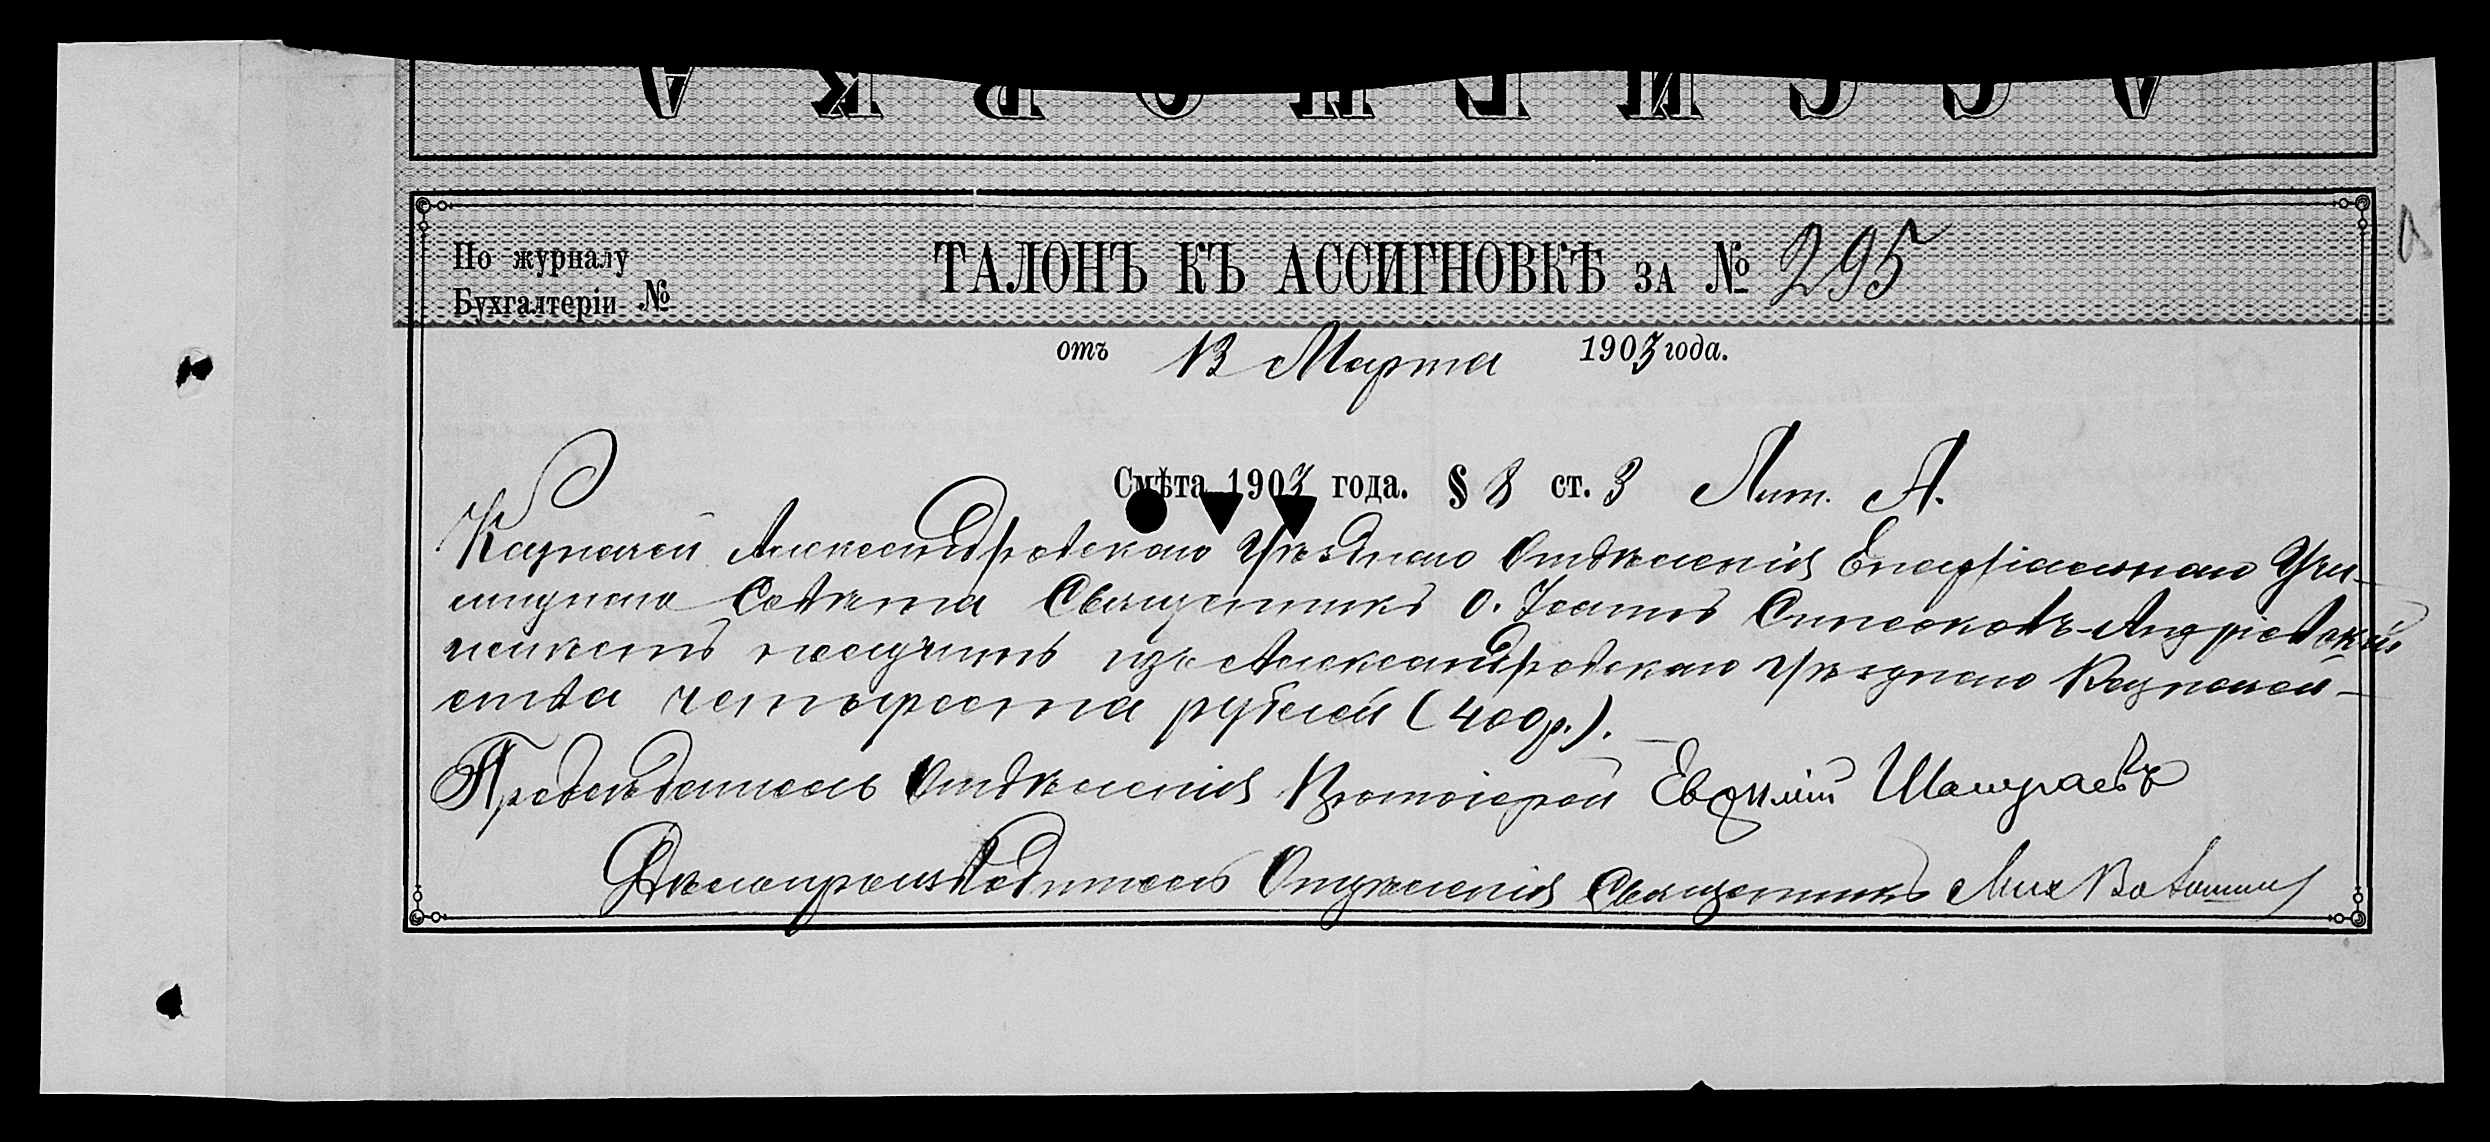 АССИГНОВКА
По журналу
Бухгалтеріи №
ТАЛОНЪ КЪ АССИГНОВКѢ ЗА № 295
отъ 13 Марта 1903 года.
Смѣта 1903 года. § 8 ст. 3 Лит. А.
Казначей Александровскаго Уѣзднаго Отдѣленія Епархіальнаго Учи-
лищнаго Совѣта Священникъ о. Іоаннъ
имѣетъ получить изъ Александровскаго Уѣзднаго Казначей-
ства четыреста рублей (400 р.).
Предсѣдатель Отдѣленія Протоіерей Евфимій
Дѣлопроизводитель Отдѣленія Священникъ Мих